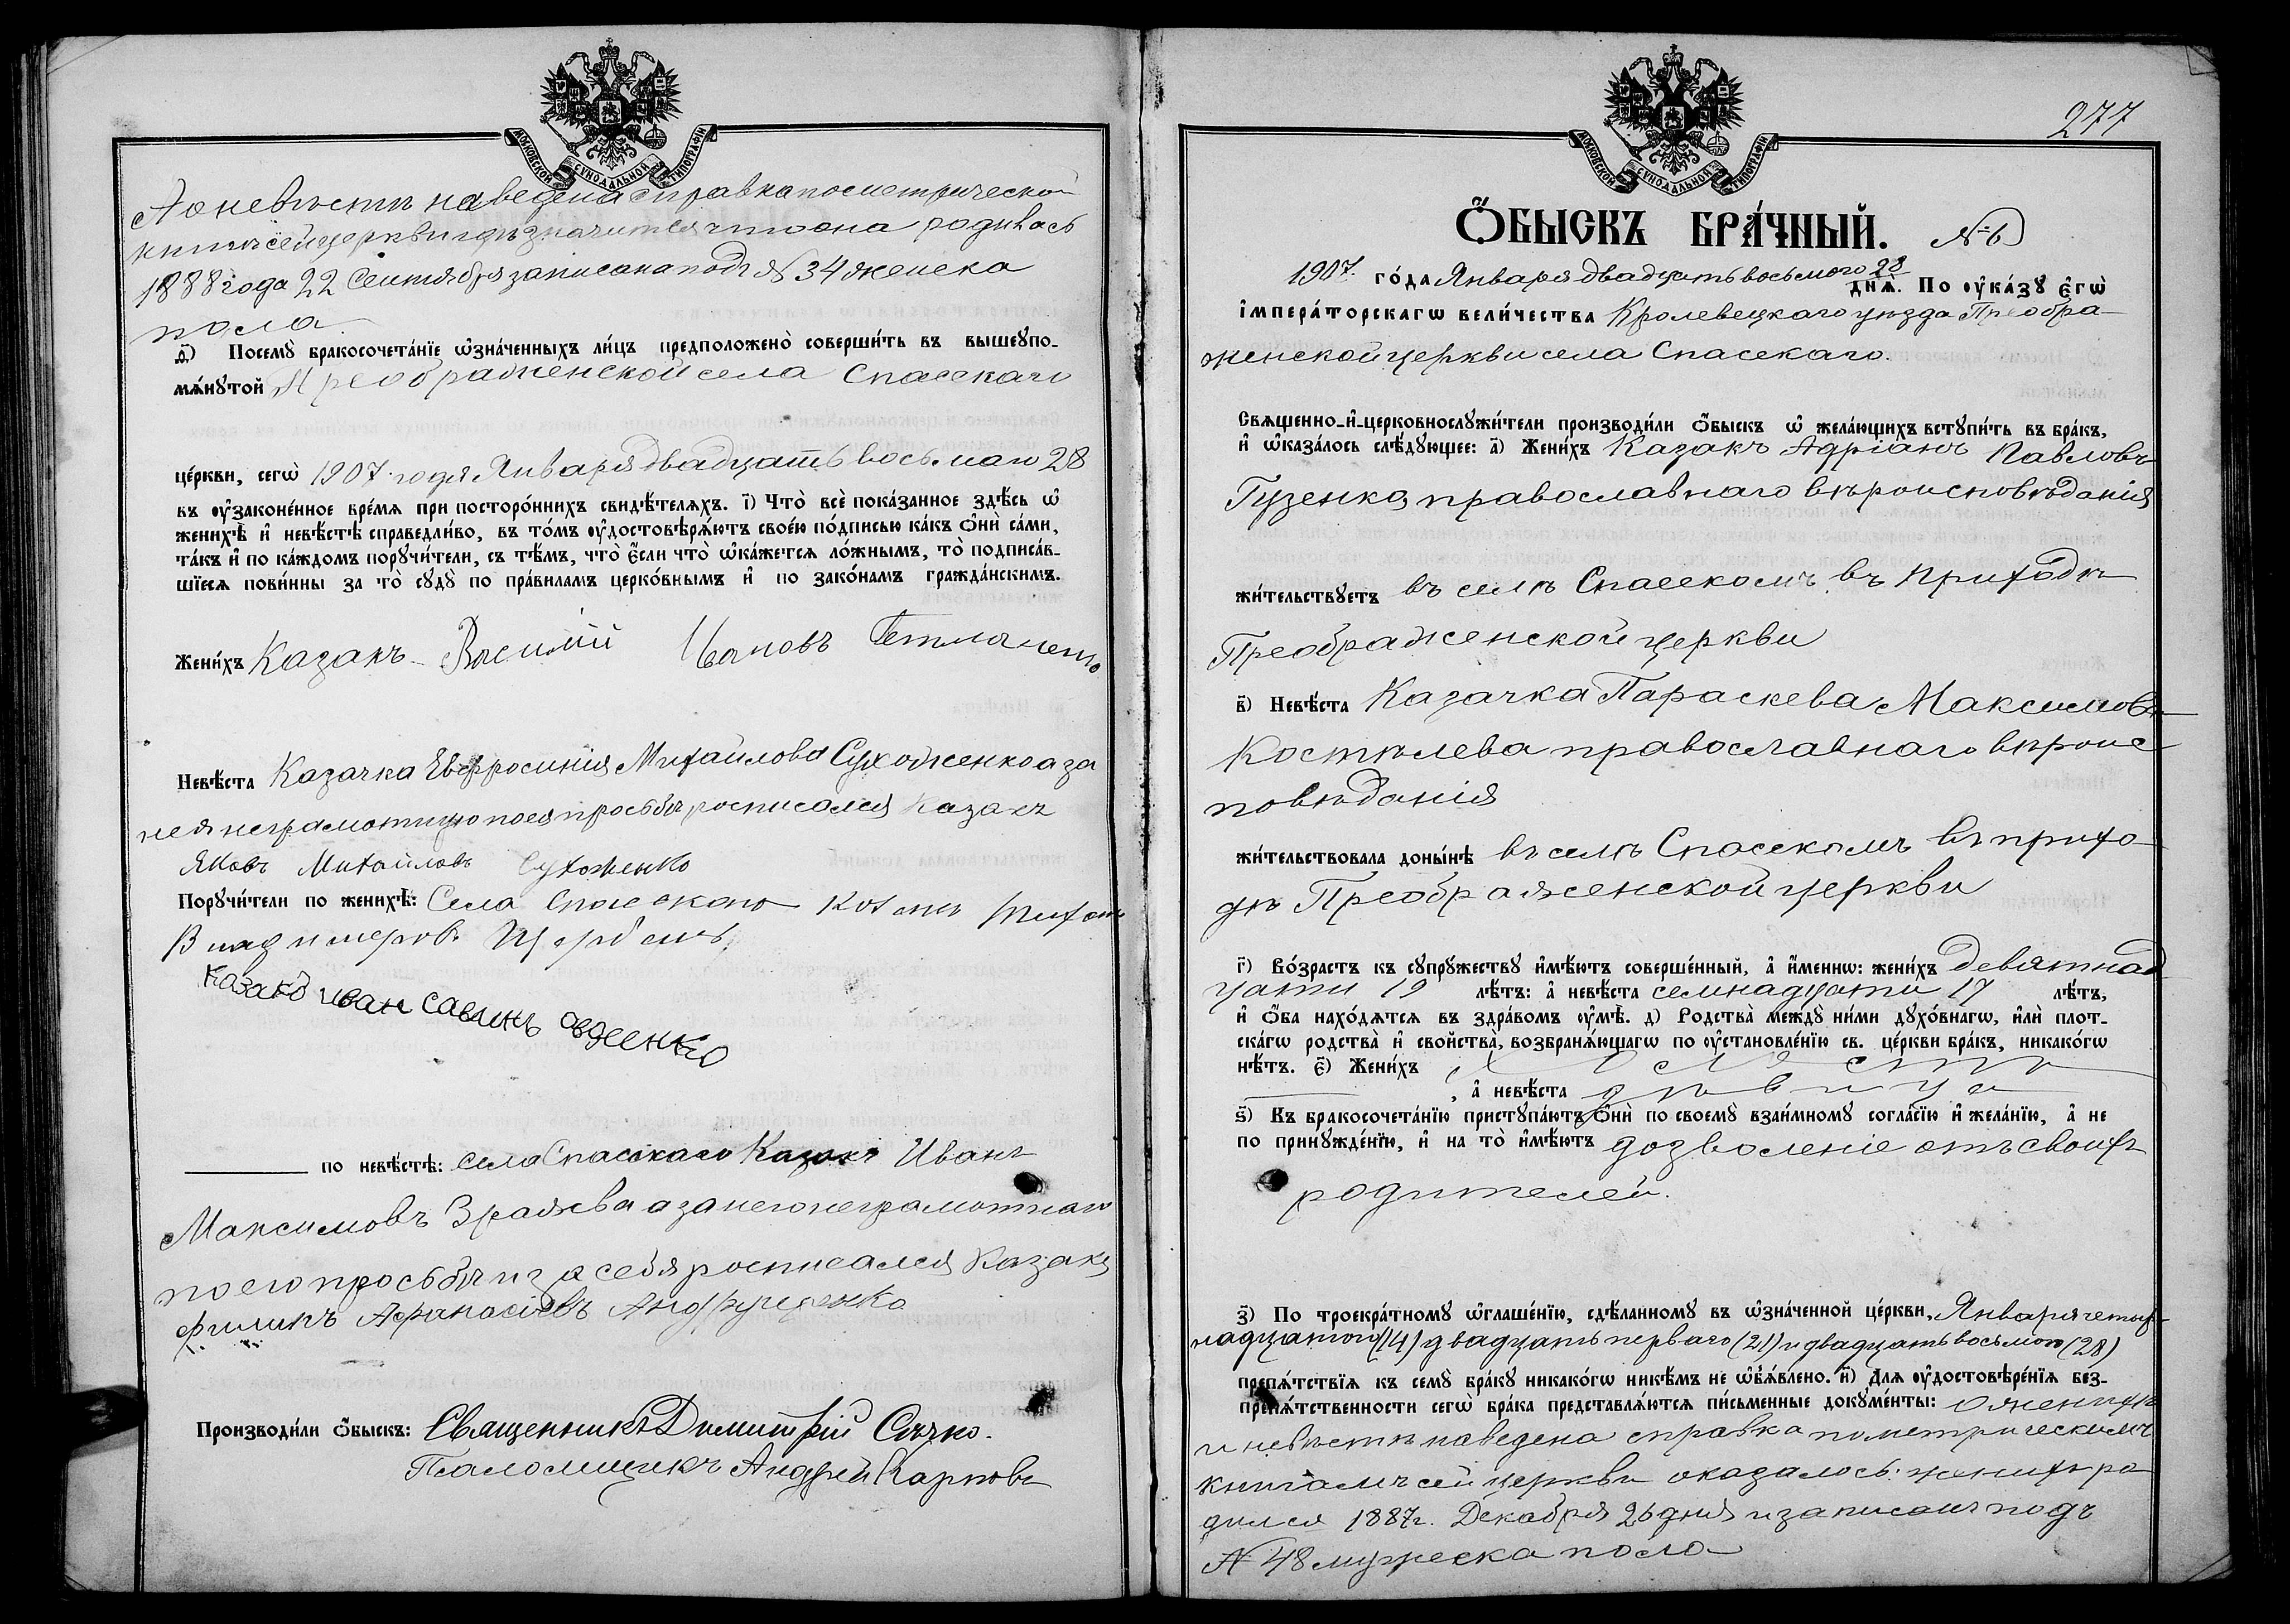 МОСКОВСКОЙ СѴНОДАЛЬНОЙ ТИПОГРАФІИ
А о невѣстѣ наведена справка по метрической
книгѣ сей церкви гдѣ значится что она родилась
1888 года 22 Сентября записана подъ № 34 женска
пола.
д҃) Посемꙋ̀ бракосочета́нїе ѡ҆зна́ченныхъ ли́цъ предположено̀ соверши́ть въ вышеꙋпо-
мѧ́нꙋтой Преображенской села Спасскаго
це́ркви, сегѡ̀ 1907 года Января двадцать восьмаго 28
въ ᲂу҆законе́нное вре́мѧ при посторо́ннихъ свидѣ́телѧхъ. і҃) Что̀ всѐ пока́занное здѣ́сь ѡ҆
женихѣ̀ и҆ невѣ́стѣ справедли́во, въ то́мъ ᲂу҆достовѣрѧ́ютъ свое́ю по́дписью ка́къ ѻ҆нѝ са́ми,
та́къ и҆ по ка́ждомъ порꙋчи́тели, съ тѣ́мъ, что̀ є҆́сли что̀ ѡ҆ка́жетсѧ ло́жнымъ, то̀ подписа́в-
шїесѧ пови́нны за то̀ сꙋдꙋ̀ по пра́виламъ церко́внымъ и҆ по зако́намъ гражда́нскимъ.
Жени́хъ Казакъ Василій Ивановъ
Невѣ́ста Казачка Евфросинія Михайлова Сухоженко а за
нея неграмотную по ея просьбѣ росписался Казакъ
Яковъ Михайловъ Сухоженко
Порꙋчи́тели по женихѣ̀: Села Спасскаго
Владимеровъ
казакъ иван савинъ авдеенко
по невѣ́стѣ: села Спасскаго Казакъ Иванъ
Максимовъ Зражева а за него неграмотнаго
по его просьбѣ и за себя росписался Казакъ
Филипъ Афанасіевъ Андрущенко
Производи́ли ѻ҆́быскъ: Священникъ Димитрій Сѣчко.
Псаломщикъ Андрей Карповъ
277
МОСКОВСКОЙ СѴНОДАЛЬНОЙ ТИПОГРАФІИ
Ѻ҆́БЫСКЪ БРА́ЧНЫЙ. № 6
1907. го́да Января двадцать восьмого 28 днѧ̀. По ᲂу҆ка́зꙋ є҆гѡ̀
і҆мпера́торскагѡ вели́чества Кролевецкаго уѣзда Преобра-
женской церкви села Спасскаго.
Свѧщенно-и҆-церковнослꙋжи́тели производи́ли ѻ҆́быскъ ѡ҆ жела́ющихъ встꙋпи́ть въ бра́къ,
и҆ ѡ҆каза́лось слѣ́дꙋющее: а҃) Жени́хъ Казакъ Адріанъ Павловъ
Гузенко, православнаго вѣроисповѣданія
жи́тельствꙋетъ въ селѣ Спасскомъ въ приходѣ
Преображенской церкви
в҃) Невѣ́ста Казачка Параскева Максимова
Костылева православнаго вѣроис
повѣданія
жи́тельствовала доны́нѣ въ селѣ Спасскомъ въ прихо-
дѣ Преображенской церкви
г҃) Во́зрастъ къ сꙋпрꙋ́жествꙋ и҆мѣ́ютъ соверше́нный, а҆ и҆́меннѡ: жени́хъ девятнад
цати 19 лѣ́тъ: а҆ невѣ́ста семнадцати 17 лѣ́тъ,
и҆ ѻ҆́ба нахо́дѧтсѧ въ здра́вомъ ᲂу҆мѣ̀. д҃) Родства̀ междꙋ̀ ни́ми дꙋхо́внагѡ, и҆лѝ плот-
ска́гѡ родства̀ и҆ свойства̀, возбранѧ́ющагѡ по ᲂу҆становле́нїю св. це́ркви бра́къ, никако́гѡ
нѣ́тъ. є҃) Жени́хъ холостъ
, а҆ невѣ́ста дѣвица
ѕ҃) Къ бракосочета́нїю пристꙋпа́ютъ ѻ҆нѝ по своемꙋ̀ взаи́мномꙋ согла́сїю и҆ жела́нїю, а҆ не
по принꙋжде́нїю, и҆ на то̀ и҆мѣ́ютъ дозволеніе отъ своихъ
родителей.
з҃) По троекра́тномꙋ ѡ҆глаше́нїю, сдѣ́ланномꙋ въ ѡ҆зна́ченной це́ркви, Января четыр-
надцатого (14) двадцать перваго (21) и двадцать восьмого (28)
препѧ́тствїѧ къ семꙋ̀ бра́кꙋ никако́гѡ никѣ́мъ не ѡ҆бъѧ́влено. и҃) Длѧ ᲂу҆достовѣре́нїѧ без-
препѧ́тственности сегѡ̀ бра́ка представлѧ́ютсѧ пи́сьменные докꙋме́нты: О женихѣ
и невѣстѣ наведена справка по метрическимъ
книгамъ сей церкви оказалось: женихъ ро
дился 1887 г. Декабря 26 дня и записанъ подъ
№ 48 мужеска пола